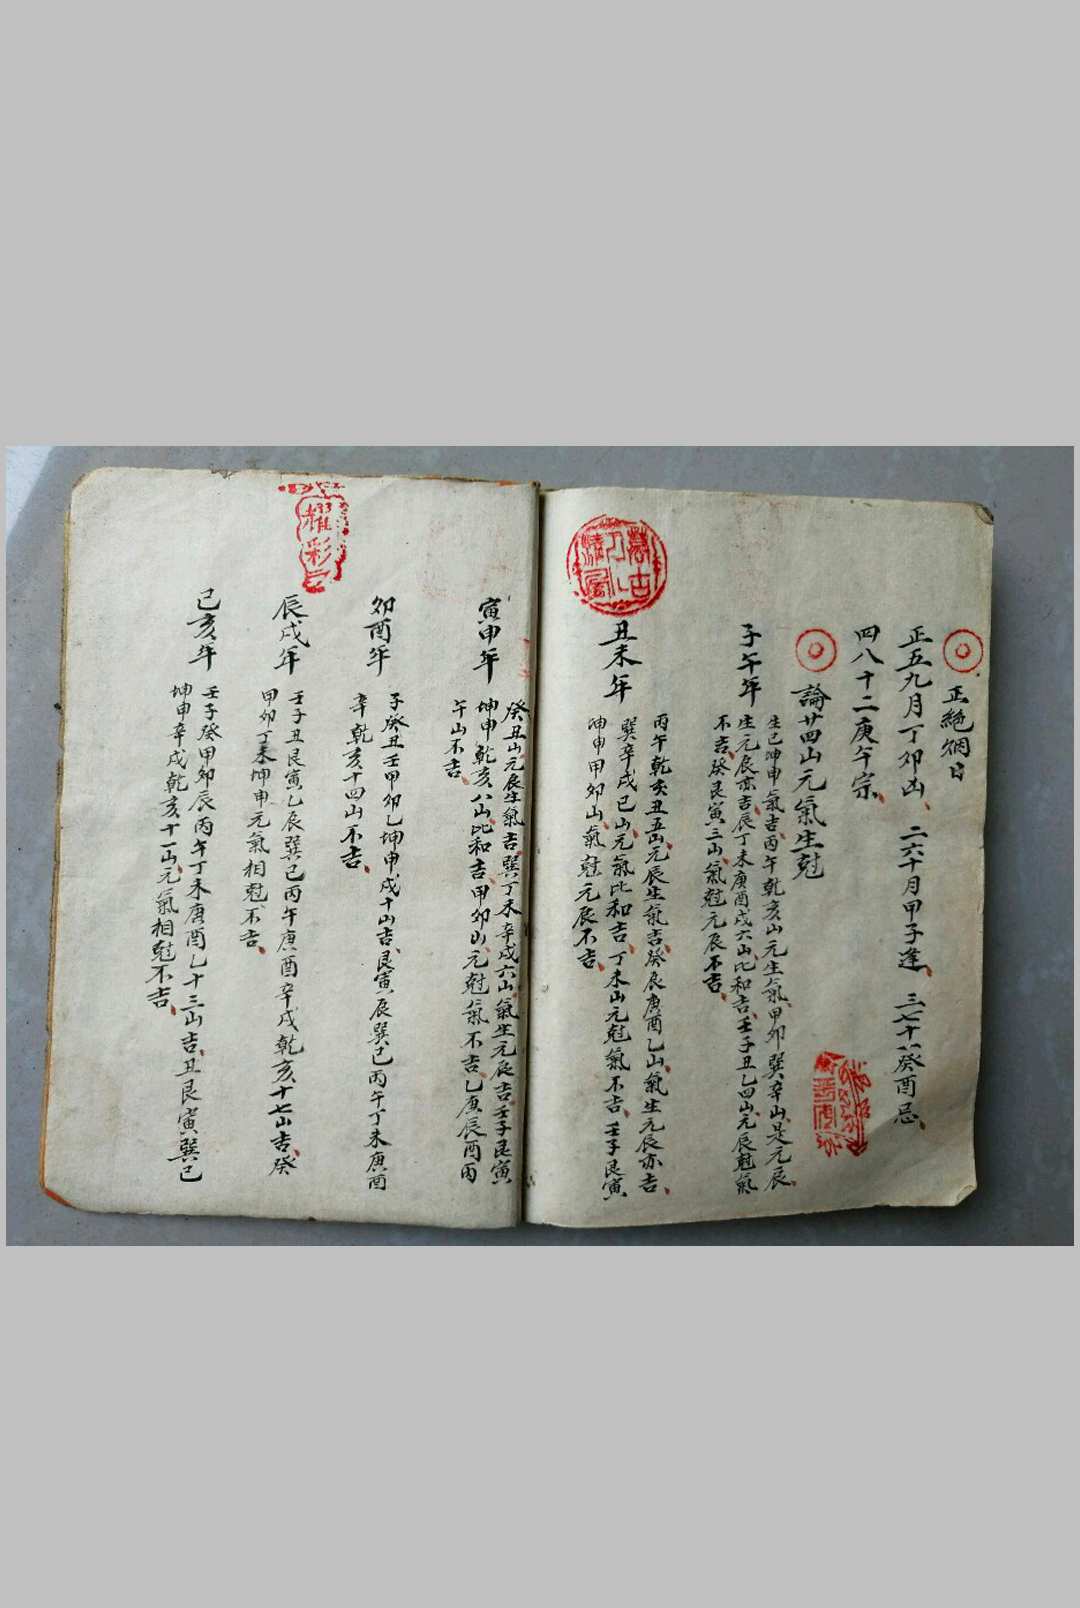 正絕烟日
正五九月丁卯凶、二六十月甲子逢、三七十一癸酉忌、
四八十二庚午宗、
論廿四山元氣生尅
子午年
生巳坤申氣吉、丙午乾亥山元生氣、甲卯巽辛山是元辰、
生元辰亦吉、辰丁未庚酉戌六山比和吉、壬子丑乙四山元辰尅氣
不吉、癸艮寅三山氣尅元辰不吉、
丑未年
丙午乾亥丑五山元辰生氣吉、癸辰庚酉乙山氣生元辰亦吉、
巽辛戌巳山元氣比和吉、丁未山元尅氣不吉、壬子艮寅
坤申甲卯山氣尅元辰不吉、
寅申年
癸丑山元辰生氣吉、巽丁未辛戌六山氣生元辰吉、壬子艮寅
坤申乾亥八山比和吉、甲卯山元尅氣不吉、乙庚辰酉丙
午山不吉、
卯酉年
子癸丑壬甲卯乙坤申戌十山吉、艮寅辰巽巳丙午丁未庚酉
辛乾亥十四山不吉、
辰戌年
壬子丑艮寅乙辰巽巳丙午庚酉辛戌乾亥十七山吉、癸
甲卯丁未坤申元氣相尅不吉、
巳亥年
壬子癸甲卯辰丙午丁未庚酉乙十三山吉、丑艮寅巽巳
坤申辛戌乾亥十一山元氣相尅不吉、
耀彩
萬古